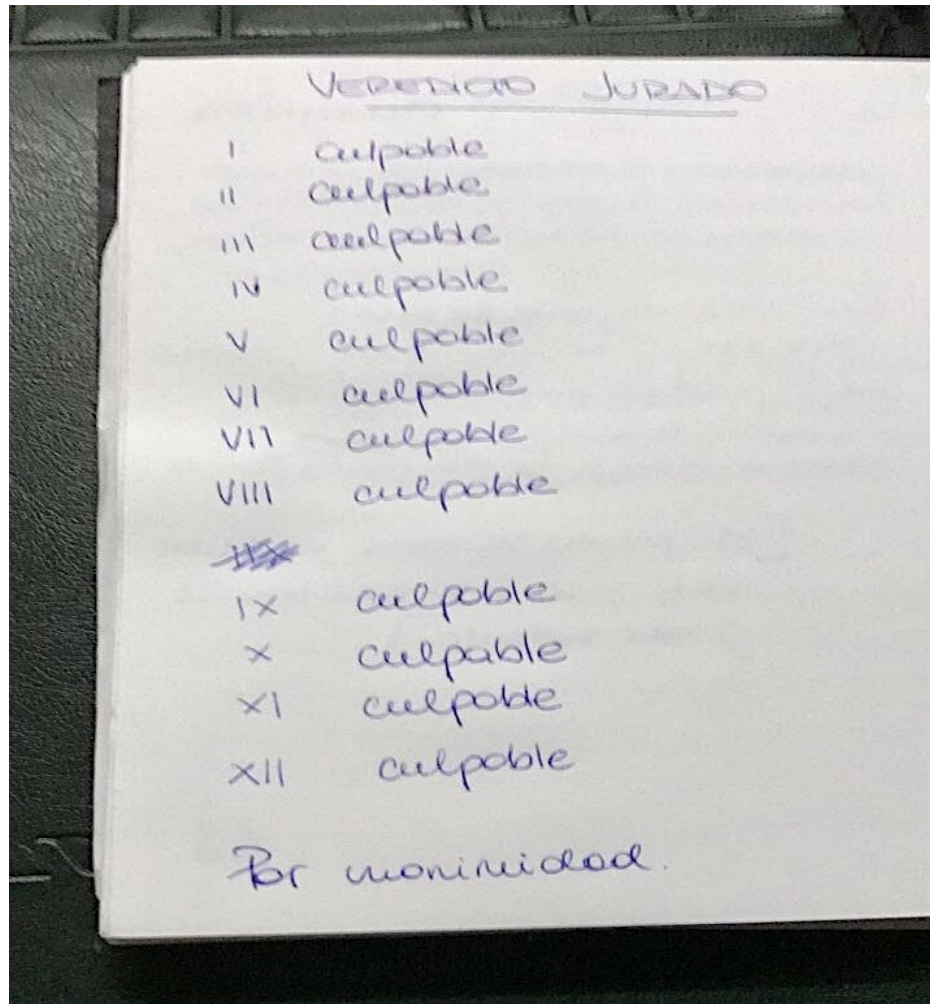 VEREDICTO JURADO
I culpable
II culpable
III culpable
IV culpable
V culpable
VI culpable
VII culpable
VIII culpable
IX culpable
X culpable
XI culpable
XII culpable
Por unanimidad.